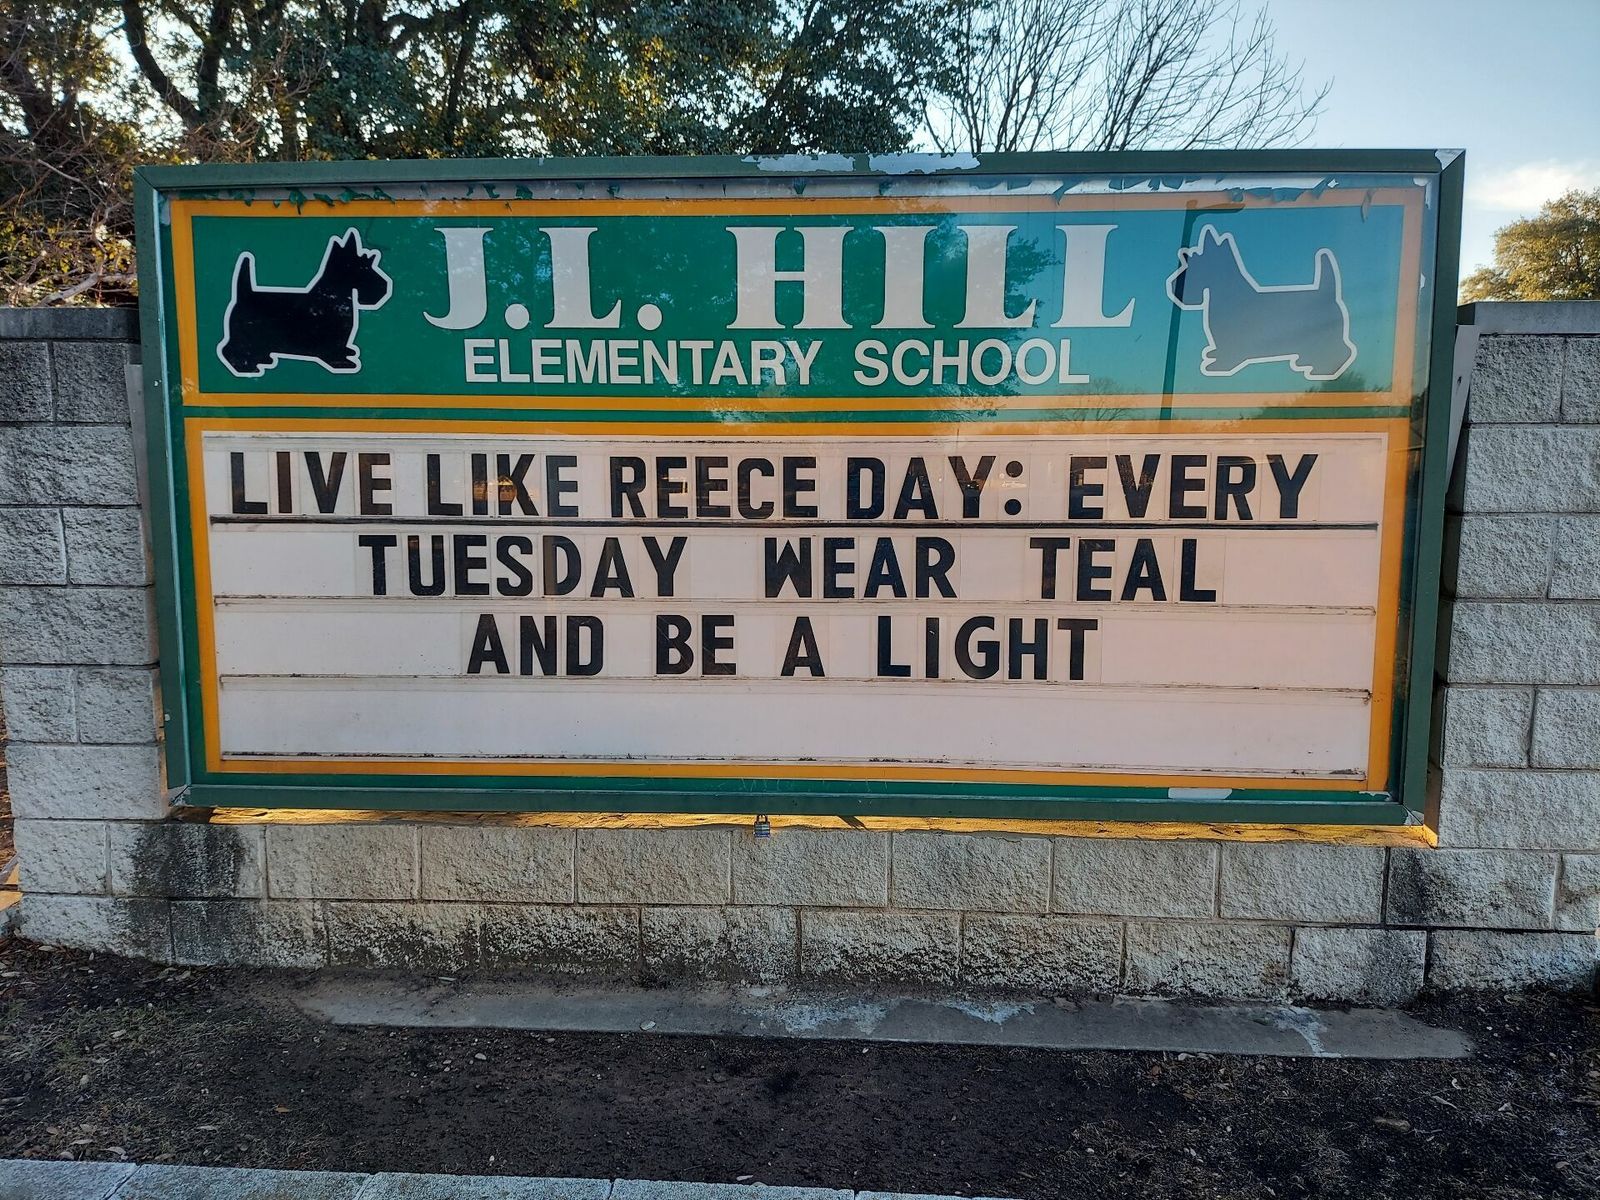 J.L. HILL
ELEMENTARY SCHOOL
LIVE LIKE REECE DAY: EVERY
TUESDAY WEAR TEAL
AND BE A LIGHT